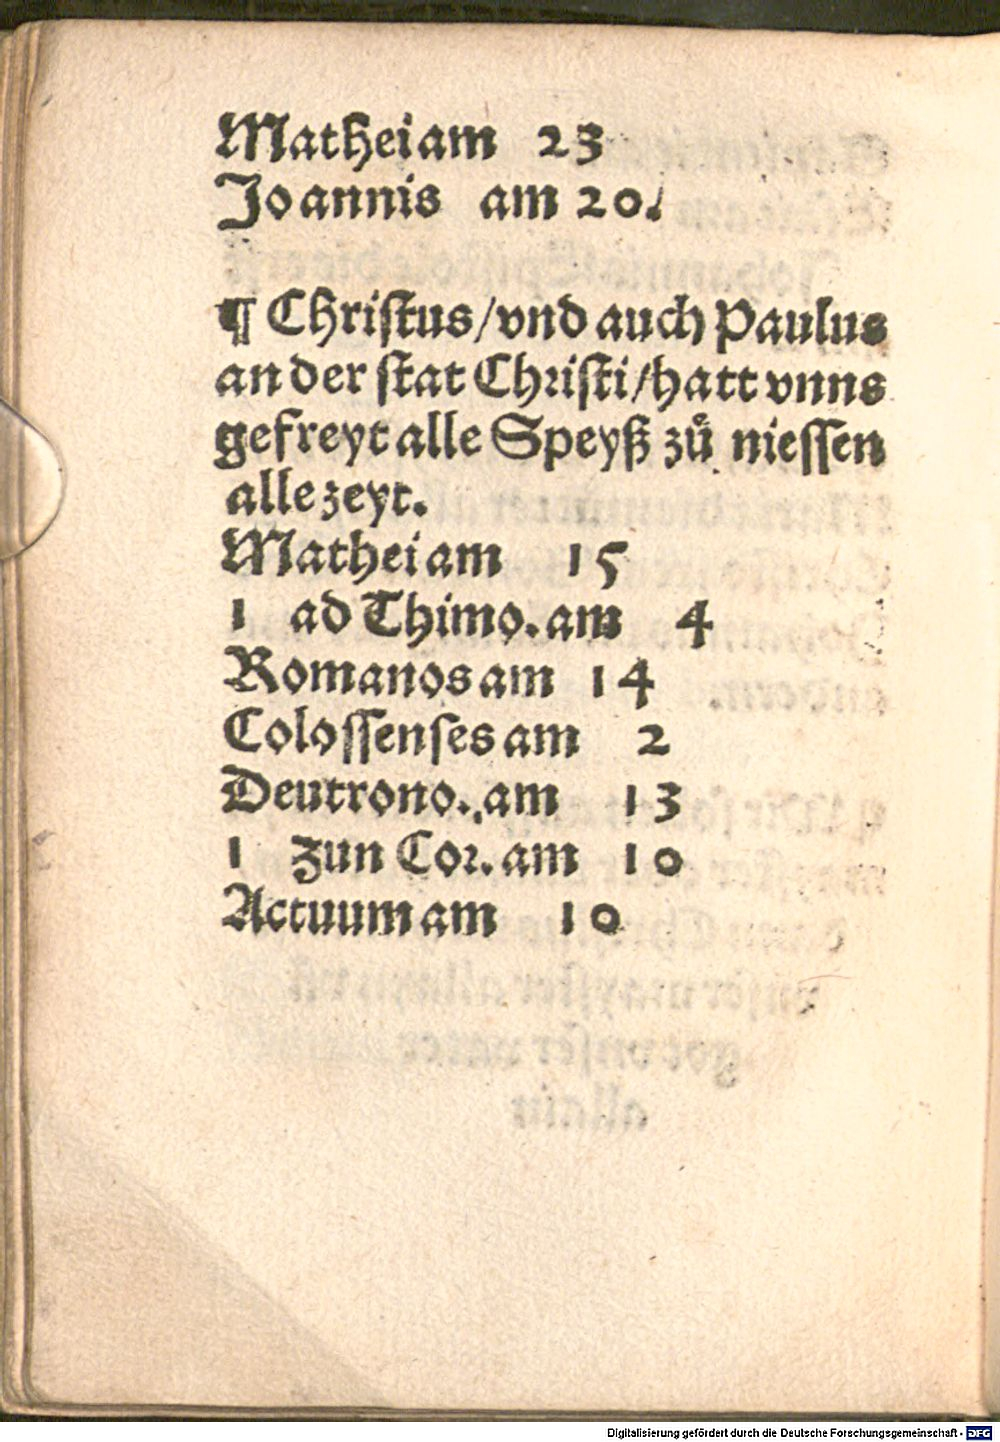 Mathei am 23
Joannis am 20.
¶ Chriſtus/vnd auch Paulus
an der ſtat Chriſti/hatt vnns
gefreyt alle Speyß zuͦ nieſſen
alle zeyt.
Mathei am 15
1 ad Thimo. am 4
Romanos am 14
Coloſſenſes am 2
Deutrono. am 13
1 zun Cor. am 10
Actuum am 10
Digitalisierung gefördert durch die Deutsche Forschungsgemeinschaft - DFG